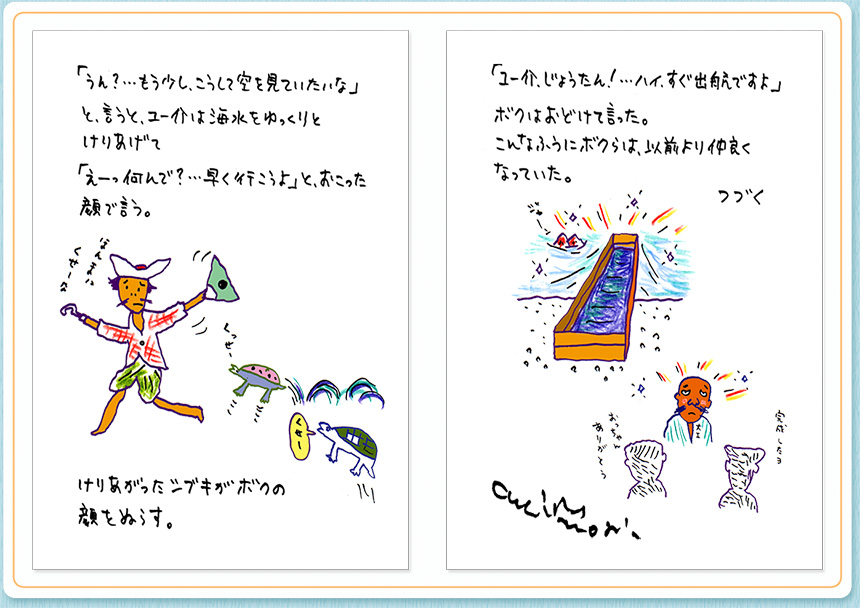 「うん？…もう少し、こうして空を見ていたいな」
と、言うと、ユー介は海水をゆっくりと
けりあげて
「えーっ何んで？…早く行こうよ」と、おこった
顔で言う。
くせー
くっせー
くせー
けりあがったシブキがボクの
顔をぬらす。
「ユー介、じょうたん！…ハイ、すぐ出発ですよ」
ボクはおどけて言った。
こんなふうにボクらは、以前より仲良く
なっていた。
つづく
ジャーン
完成したヨ
おっちゃん
ありがとう